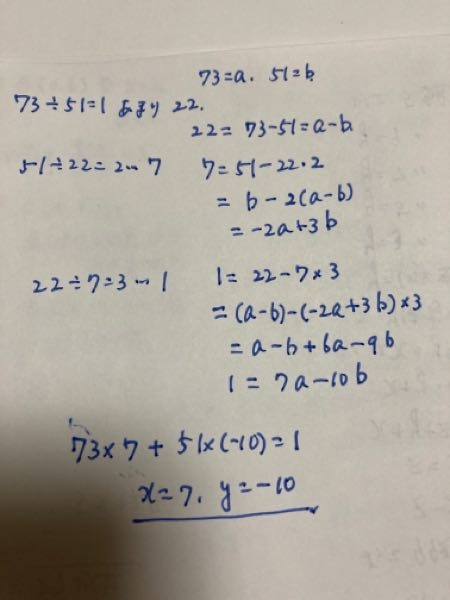 73=a. 51=b
73÷51=1 あまり 22.
22= 73-51=a-b
51÷22=2…7 7=51-22・2
= b-2(a-b)
= -2a+3b
22÷7=3…1 1= 22-7×3
= (a-b)-(-2a+3b)×3
= a-b+6a-9b
1= 7a-10b
73×7+51×(-10)=1
x=7. y=-10